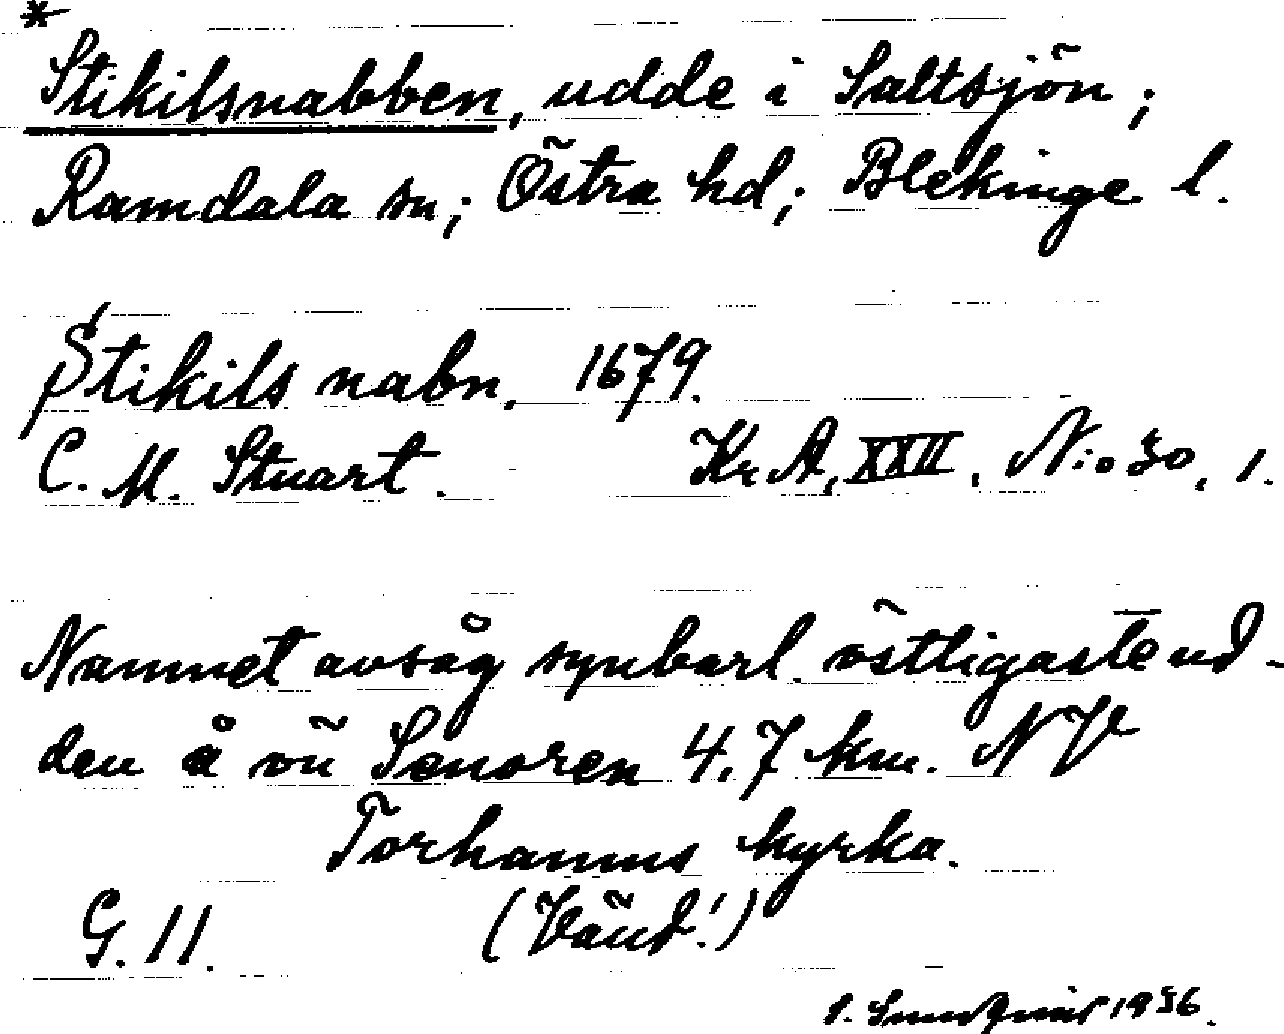 *
Stikilsnabben, udde i Saltsjön;
Ramdala sn; Östra hd; Blekinge l.
Stikils nabn, 1679.
C. M. Stuart. Kr A, XXII, N:o 30, 1.
Namnet avsåg synbarl. östligaste ud-
den å ön Senoren 4,7 km. NV
Torhamns kyrka.
G. 11. (Vänd!)
1936.